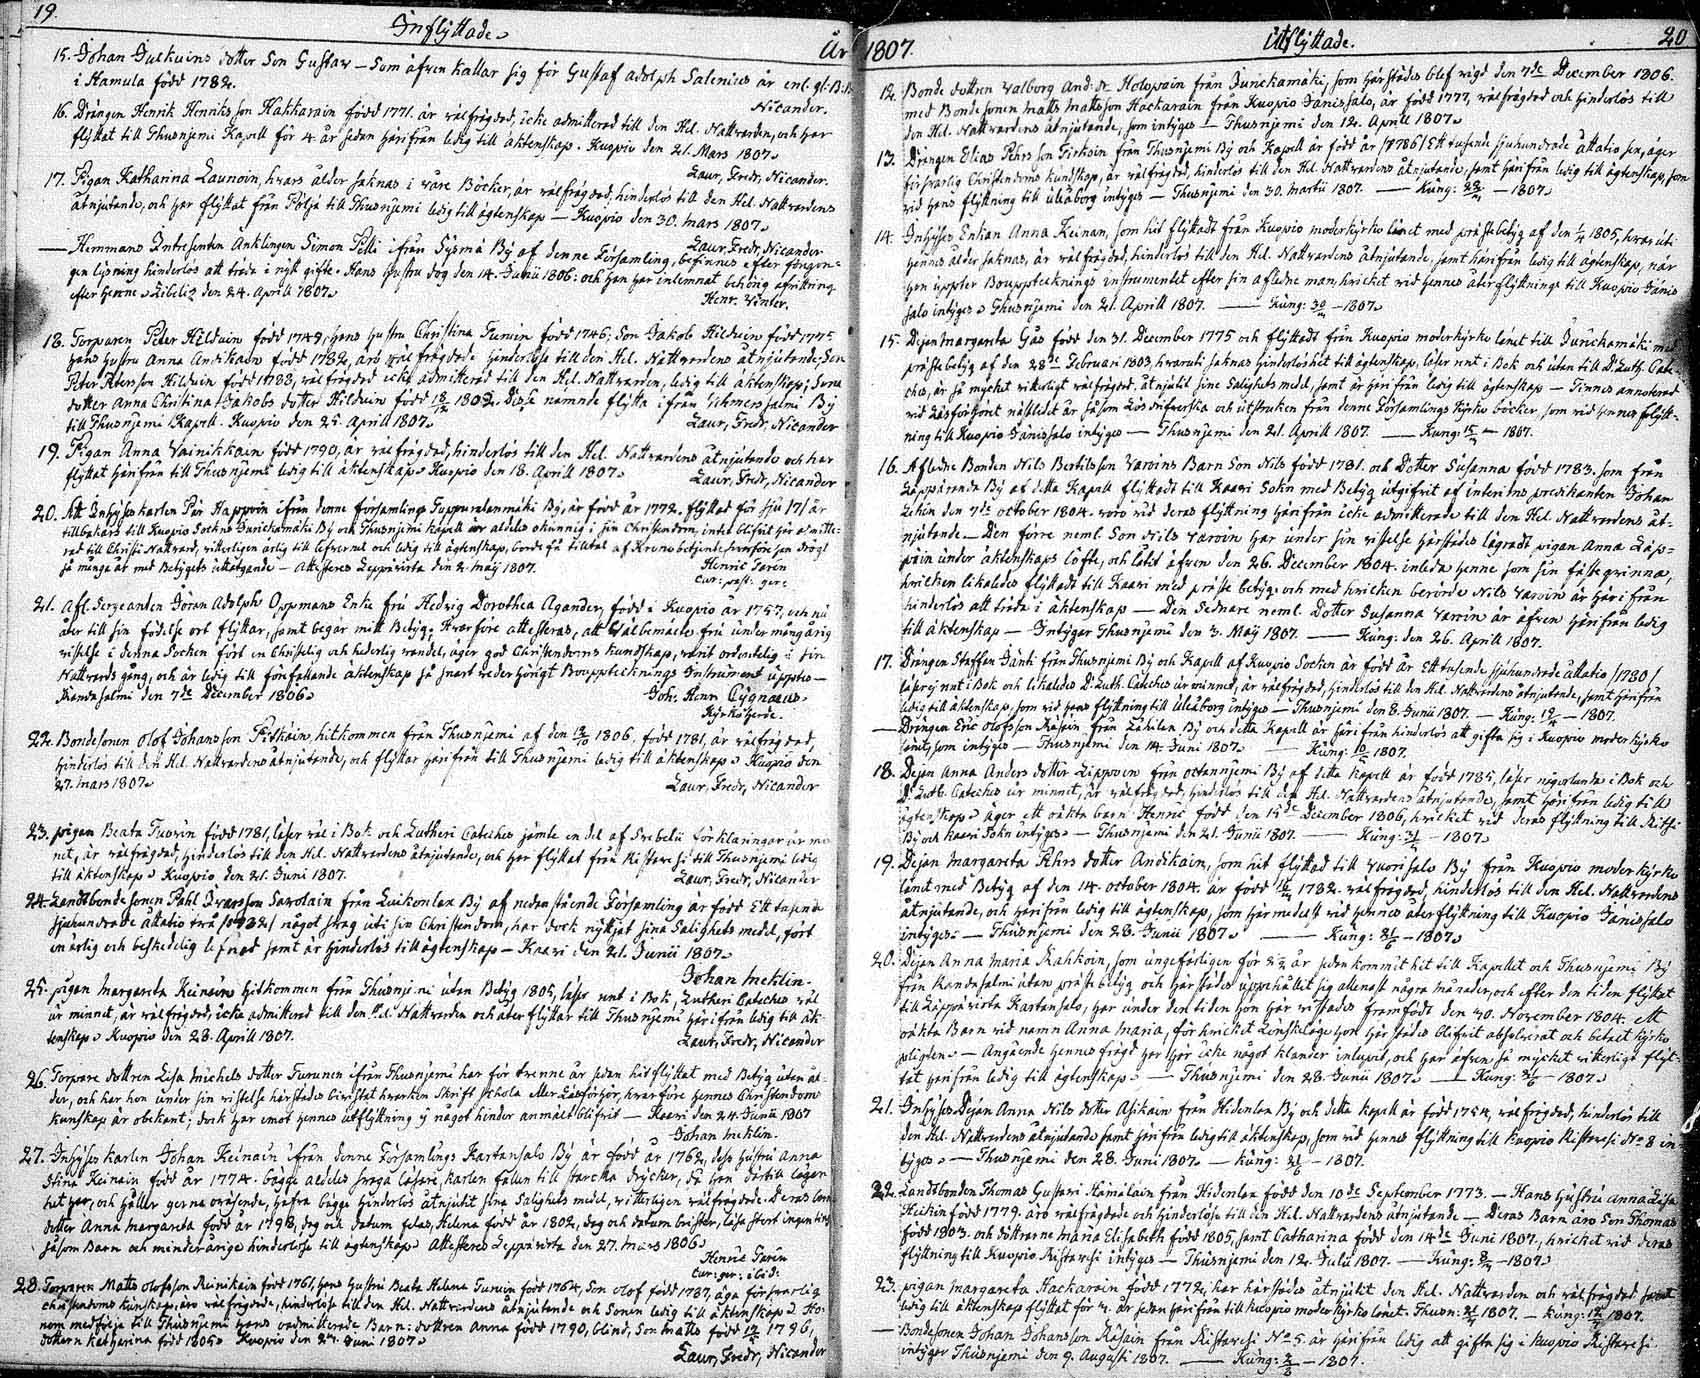 19.
Inflyttade.
År
15. Johan Julkuins dotter Son Gustav — Som äfven kallar sig för Gustaf adolph Salenius är enl. gl. B:
i Hamula född 1782.
Nicander.
16. Drängen Henrik Henriksson Hakkarain född 1771. är välfrägdad, icke admitterad till den Hel. Nattvarden, och har
flyttat till Thusnjemi Kapell för 4. år sedan härifrån ledig till äktenskap. Kuopio den 21. Mars 1807.
Laur, Fredr, Nicander.
17. Pigan Katharina Launoin, hvars ålder saknas i våre Böcker, är välfrägdad, hinderlös till den Hel. Nattvardens
åtnjutande, och har flyttat från Pöljä till Thusnjemi ledig till ägtenskap — Kuopio den 30. mars 1807.
Laur, Fredr, Nicander
— Hemmans Intressenten Anklingen Simon Pelli ifrån Sysmä By af denne Församling, befinnes efter föregån=
gen lysning hinderlös att träda i nytt gifte. Hans hustru dog den 14. Junii 1806: och han har inlemnat behörig afvittring
efter henne. Libelitz den 24. Aprill 1807.
Henr. Winter.
18. Torparen Peter Hilduin född 1749, hans hustru Christina Turuin född 1746; Son Jakob Hilduin född 1775
hans hustru Anna Andikain född 1782, äro välfrägdade hinderlöse till den Hel. Nattvardens åtnjutande; Son
Peter Petersson Hilduin född 1788, välfrägdad icke admitterad till den Hel. Nattvarden, ledig till äktenskap; Sons
dotter Anna Christina Jakobs dotter Hilduin född 18/12 1802. Desse nämnde flytta ifrån Vehmersalmi By
till Thusnjemi Kapell. Kuopio den 25. Aprill 1807.
Laur, Fredr, Nicander
19. Pigan Anna Vainikkain född 1790, är välfrägdad, hinderlös till den Hel. Nattvardens åtnjutande och har
flyttat härifrån till Thusnjemi ledig till äktenskap. Kuopio den 18. Aprill 1807.
Laur, Fredr, Nicander
20. Att Inhyseskarlen Pär Happoin ifrån denne församlings Tuppuralanmäki By, är född år 1772. flyttad för sju /7/ år
tillbakars till Kuopio Sockns Jurickamäki By och Thusnjemi kapell war aldeles okunnig i sin Christendom, intet blifvit här admitte=
rad till Christi Nattvard, witterligen ärlig till lefvernet och ledig till ägtenskap, borde få tilltal af Krono betjente, hvarföre han drögt
så många år med Betygets uttagande — Attesteres Leppävirta den 2. maÿ 1807.
Henric Toren
Cur: past: ger:
21. Afl. Sergeanten Göran Adolph Oppmans Enke fru Hedvig Dorothea Agander, född i Kuopio år 1757, och nu
åter till sin födelse ort flyttar, samt begär mitt Betyg; Hvarföre attesteras, att Välbemälte fru under mångårig
vistelse i denna Socken fört en Christelig och hederlig vandel, äger god Christendoms kundskap, varit ordentelig i sin
Nattvards gång, och är ledig till förefallande äktenskap så snart vederbörligt Bouppteknings Instrument uppvises —
Randasalmi den 7de December 1806.
Joh. Henr Cygnæus.
Kyrkoherde.
22. Bondesonen Olof Johansson Pirskain, hitkommen från Thusnjemi af den 12/10 1806, född 1781, är välfrägdad,
hinderlös till den Hel. Nattvardens åtnjutande, och flyttar härifrån till Thusnjemi ledig till äktenskap. Kuopio den
27. mars 1807.
Laur, Fredr, Nicander
23. pigan Beata Tuovin född 1781, läser väl i Bok och Lutheri Cateches jämte en del af Svebelii förklaringar ur mi
net, är välfrägdad, hinderlös till den Hel. Nattvardens åtnjutande, och har flyttat från Ristavesi till Thusnjemi ledig
till äktenskap. Kuopio den 21. Juni 1807.
Laur, Fredr, Nicander
24. Landtbondesonen Påhl Ivarsson Savolain från Luikonlax By af nedanstående Församling är född Ett tusende
sjuhundrade åttatio två /1782/ något svag uti sin Christendom, har dock nyttjat sina Salighets medel, fört
en ärlig och beskedelig lefnad samt är hinderlös till ägtenskap — Kaavi den 21. Junii 1807.
Johan Mcklin.
25. pigan Margareta Keinäin hitkommen från Thusnjemi utan Betyg 1805, läser rent i Bok, Lutheri Cateches väl
ur minnet, är välfrägdad, icke admitterad till den Hel. Nattvarden och åter flyttar till Thusnjemi härifrån ledig till äk-
tenskap. Kuopio den 28. Aprill 1807.
Laur, Fredr, Nicander
26. Torpare dottren Lisa Michels dotter Turunen ifrån Thusnjemi har för trenne år sedan hitflyttat med Betyg utan ål-
der, och har hon under sin vistelse härstädes bivistat hvarken Skrift schola eller Läsförhör, hvarföre hennes Christendoms
kunskap är obekant; dock har emot hennes utflyttning ej något hinder anmält blifvit — Kaavi den 24. Junii 1807
Johan Mcklin.
27. Inhyses karlen Johan Keinäin ifrån denne Församlings Kartansalo By är född år 1762, dess hustru Anna
Stina Keinäin född år 1774. bägge aldeles svaga läsare, karlen fallen till starcka drycker, då han dertill lägen
het har, och håller gerna oväsende, hafva bägge hinderlös åtnjutit sina Salighets medel, witterligen välfrägdade. Deras barn
dotter Anna Margareta född år 1798, dag och datum felas, Helena född år 1802, dag och datum brister, läsa stort ingen ting
såsom Barn och minderårige hinderlöse till ägtenskap. Attesteres Leppävirta den 27. mars 1806.
Henric Toren
Cur: ger: ibid:
28. Torparen Matts Olofsson Reinikain född 1761, hans hustru Beata Helena Turuin född 1764, Son Olof född 1787, äga försvarlig
christendoms kunskap, äro välfrägdade, hinderlöse till den Hel. Nattvardens åtnjutande och Sonen ledig till äktenskap. Ho-
nom medfölja till Thusnjemi hans oadmitterade Barn: dottren Anna född 1790, blind, Son Matts född 1796,
dottern Katharina född 1805. Kuopio den Juni 1807.
Laur, Fredr, Nicander
1807.
Utflyttade.
20
12. Bonde dottren Valborg And: dr Holopain från Jurickamäki, som härstädes blef vigd den 7de December 1806.
med Bondesonen Matts Mattsson Hackarain från Kuopio Jänissalo, är född 1777, välfrägdad och hinderlös till
den Hel. Nattvardens åtnjutande, som intÿges — Thusnjemi den 12. Aprill 1807.
13. Drängen Elias Pehrs son Tirkoin från Thusnjemi By och Kapell är född år /1786/ Ett tusende sjuhundrade åttatio sex, äger
försvarlig Christendoms kundskap, är välfrägdad, hinderlös till den Hel. Nattvardens åtnjutande, samt härifrån ledig till ägtenskap, som
vid hans flyttning till Uleåborg intÿges — Thusnjemi den 30. Martii 1807. — Küng: — 1807.
14. Inhyses Enkan Anna Keinan, som hit flyttadt från Kuopio moderkyrko länet med prästebetyg af den 1805, hvaruti
hennes ålder saknas, är välfrägdad, hinderlös till den Hel. Nattvardens åtnjutande, samt härifrån ledig till ägtenskap, när
hon uppter Bouppteknings instrumentet efter sin aflidne man, hvilcket vid hennes återflyttning till Kuopio Jänis
salo intÿges. Thusnjemi den 21. Aprill 1807. — Küng: — 1807.
15. Dejan Margareta Gås född den 31. December 1775 och flyttadt från Kuopio moderkyrko länet till Jurichamäki med
prästebetyg af den 28de Februari 1803, hvaruti saknas hinderlöshet till ägtenskap, läser rent i Bok och utan till Dr. Luth. Cate
ches, är så mycket vitterligt välfrägdad, åtnjutit sine Salighets medel, samt är härifrån ledig till ägtenskap — Finnes annoterad
vid Läsförhöret nästledet år såsom Lösdrifverska och utstruken från denne Församlings Kyrko böcker, som vid hennes flytt-
ning till Kuopio Jänissalo intÿges — Thusnjemi den 21. Aprill 1807. — Küng: — 1807.
16. Aflidne Bonden Nils Bertilsson Varoins Barn Son Nils född 1781. och Dotter Susanna född 1783. som från
Läppäranda By af detta Kapell flyttadt till Kaavi Sokn med Betyg utgifvit af interims predikanten Johan
Lehin den 7de October 1804. voro vid deras flyttning härifrån icke admitterade till den Hel. Nattvardens åt-
njutande — Den förre neml. Son Nils Varoin har under sin vistelse härstädes lägradt pigan Anna Lap=
päin under äktenskaps löfte, och låtit äfven den 26. December 1804. inleda henne som sin fästeqvinna,
hvilcken likaledes flyttadt till Kaavi med präste betyg, och med hvilcken berörde Nils Varoin är härifrån
hinderlös att träda i äktenskap — Den Sednare neml. Dotter Susanna Varoin är äfven härifrån ledig
till äktenskap — Intÿgar Thusnjemi den 3. Maÿ 1807. — Küng: den 26. Aprill 1807.
17. Drängen Staffan Jänti från Thusnjemi By och Kapell af Kuopio Socken är född år Ett tusende sjuhundrade åttatio /1780/
läser ej rent i Bok och likaledes Dr. Luth. Cateches ur minnet, är välfrägdad, hinderlös till den Hel. Nattvardens åtnjutande, samt härifrån
ledig till äktenskap, som vid hans flyttning till Uleåborg intÿges — Thusnjemi den 8. Junii 1807. — Küng: — 1807.
— Drängen Eric Olofsson Räsäin från Lahilax By och detta Kapell är härifrån hinderlös att gifta sig i Kuopio moderkyrko
länet, som intÿges — Thusnjemi den 14. Juni 1807. — Küng: 1807.
18. Dejan Anna Anders dotter Lippoin från Ostannjemi By af detta Kapell är född 1785, läser någorlunda i Bok och
Dr. Luth. Cateches ur minnet, är välfrägdad, hinderlös till den Hel. Nattvardens åtnjutande, samt härifrån ledig till
ägtenskap. äger ett oäkta barn Henric född den 15de December 1806, hvilcket vid deras flyttning till
By och Kaavi Sokn intÿges — Thusnjemi den 21. Junii 1807. — Küng: — 1807.
19. Dejan Margareta Pehrs dotter Andikain, som hit flyttad till Vuorisalo By från Kuopio moderkyrko
länet med Betyg af den 14. October 1804. är född 1782. välfrägdad, hinderlös till den Hel. Nattvardens
åtnjutande, och härifrån ledig till ägtenskap, som härmedelst vid hennes återflyttning till Kuopio Jänissalo
intÿges. — Thusnjemi den 28. Junii 1807. — Küng: 21/6 — 1807.
20. Dejan Anna Maria Kahkoin, som ungefärligen för år sedan kommit hit till Kapellet och Thusnjemi By
från Randasalmi utan präste betyg, och härstädes uppehållit sig allenast några månader, och efter den tiden flyttat
till Läppävirta Kartansalo, har under den tiden hon här vistades framfödt den 30. November 1804. ett
oäkta Barn vid namn Anna Maria, för hvilcket Lönskaläge hon härstädes blifvit absolverat och betalt kyrko
pligten. — Angående hennes frägd har här icke något klander inlupit, och har äfven så mycket vitterligt flyt-
tat härifrån ledig till ägtenskap. — Thusnjemi den 28. Junii 1807. — Küng: 21/6 — 1807.
21. Inhyses Dejan Anna Nils dotter Asikain från Hidenlax By och detta Kapell är född 1754, välfrägdad, hinderlös till
den Hel. Nattvardens åtnjutande samt härifrån ledig till äktenskap, som vid hennes flyttning till Kuopio Ristavesi No 8 in-
tÿges. — Thusnjemi den 28. Juni 1807. — Küng: 21/6 — 1807.
22. Landtbonden Thomas Gustavi Hämäläin från Hidenlax född den 10de September 1773. — Hans hustru Anna Lisa
Heikin född 1779. äro välfrägdade och hinderlöse till den Hel. Nattvardens åtnjutande — Deras Barn äro Son Thomas
född 1803. och döttrarne Maria Elisabeth född 1805, samt Catharina född den 14de Juni 1807., hvilcket vid deras
flyttning till Kuopio Ristavesi intÿges — Thusnjemi den 12. Julii 1807. — Küng: — 1807.
23. pigan Margareta Hackarain född 1772, har härstädes åtnjutit den Hel. Nattvarden och välfrägdad samt
ledig till äktenskap flyttat för år sedan härifrån till Kuopio moderkyrko länet. Thusn: 1807. — Küng: 1807.
— Bondesonen Johan Johansson Räsäin från Ristavesi No 5. är härifrån ledig att gifta sig i Kuopio Ristavesi
intÿger Thusnjemi den 9. Augusti 1807. — Küng: 2/8 — 1807.